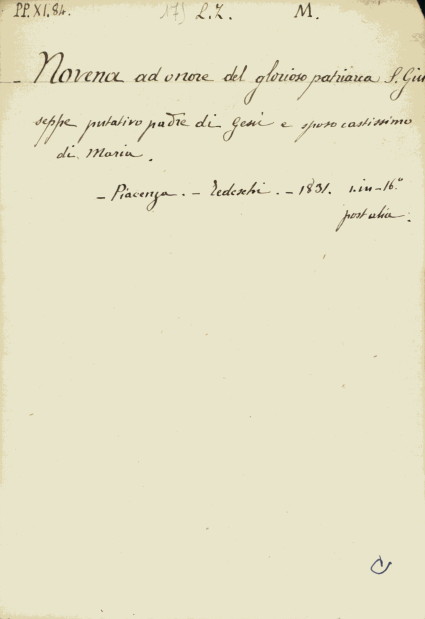 PP.XI.84. 17) L.Z. M.
– Novena ad onore del glorioso patriarca S. Giu
seppe putativo padre di Gesù e sposo castissimo
di Maria.
– Piacenza. – Tedeschi. – 1831. 1. in–16.º
post alia.